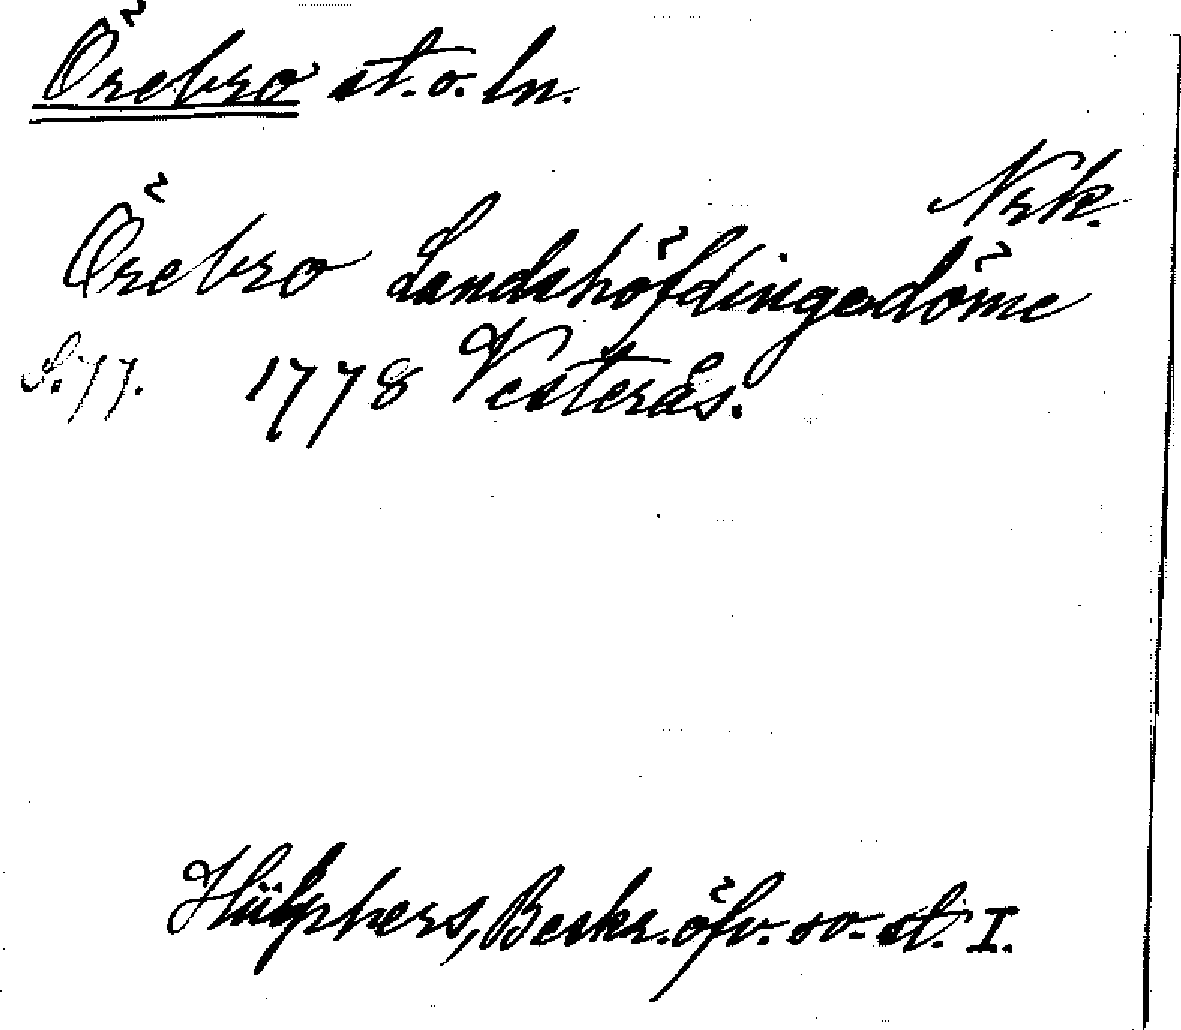 Örebro st. o. ln.
Nrk.
Örebro Landshöfdingedöme
S. 77. 1778 Vesterås.
Hülphers, Beskr. öfv. sv. st. I.